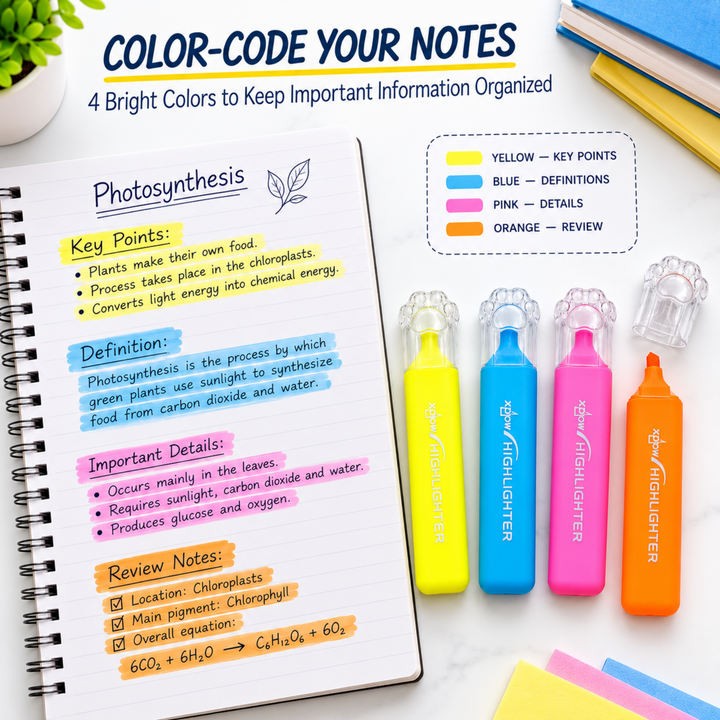 COLOR-CODE YOUR NOTES
4 Bright Colors to Keep Important Information Organized
YELLOW — KEY POINTS
BLUE — DEFINITIONS
PINK — DETAILS
ORANGE — REVIEW
Photosynthesis
Key Points:
• Plants make their own food.
• Process takes place in the chloroplasts.
• Converts light energy into chemical energy.
Definition:
Photosynthesis is the process by which
green plants use sunlight to synthesize
food from carbon dioxide and water.
Important Details:
• Occurs mainly in the leaves.
• Requires sunlight, carbon dioxide and water.
• Produces glucose and oxygen.
Review Notes:
☑ Location: Chloroplasts
☑ Main pigment: Chlorophyll
☑ Overall equation:
6CO₂ + 6H₂O → C₆H₁₂O₆ + 6O₂
HIGHLIGHTER
HIGHLIGHTER
HIGHLIGHTER
HIGHLIGHTER